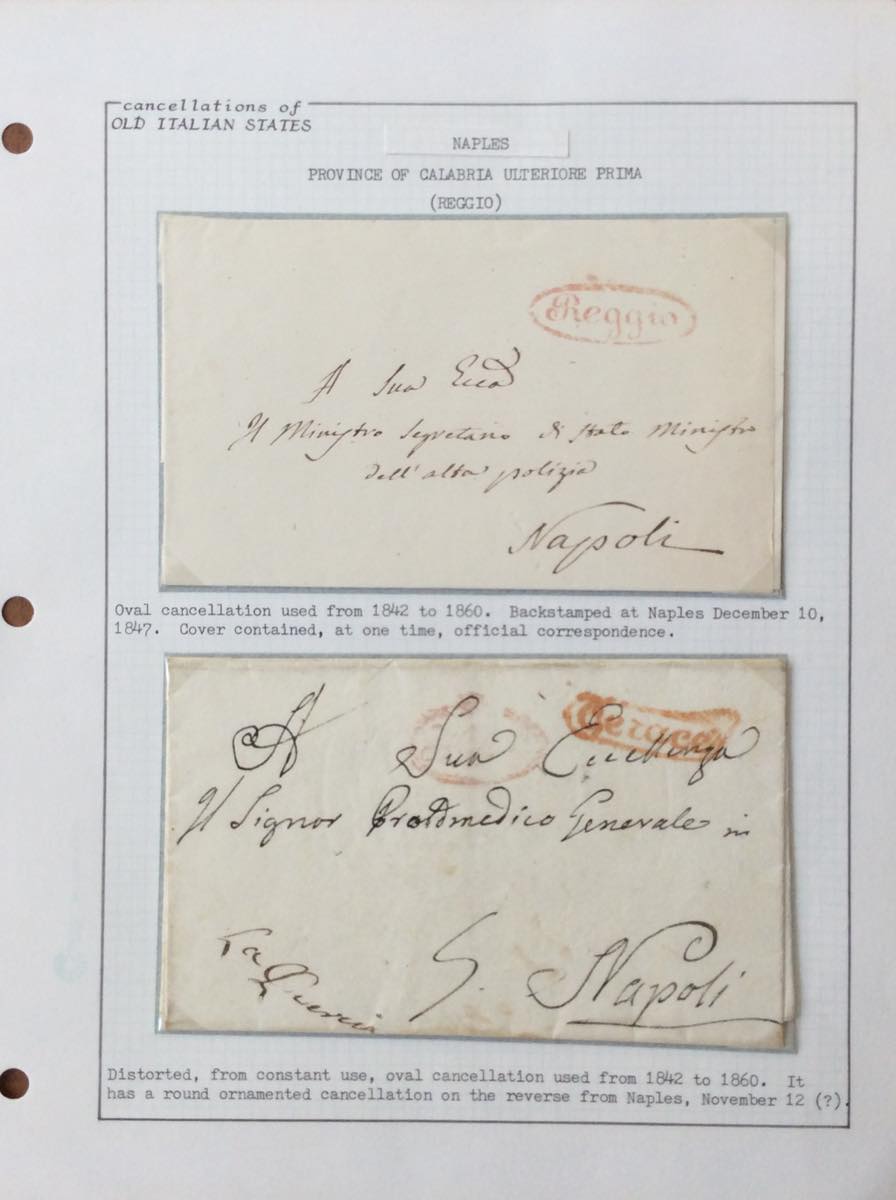 cancellations of
OLD ITALIAN STATES
NAPLES
PROVINCE OF CALABRIA ULTERIORE PRIMA
(REGGIO)
Reggio
A Sua Ecca
Il Ministro Segretario di Stato Ministro
dell'alta polizia
Napoli
Oval cancellation used from 1842 to 1860. Backstamped at Naples December 10,
1847. Cover contained, at one time, official correspondence.
Gerace
A Sua Eccellenza
Il Signor Protomedico Generale in
Napoli
Distorted, from constant use, oval cancellation used from 1842 to 1860. It
has a round ornamented cancellation on the reverse from Naples, November 12 (?).